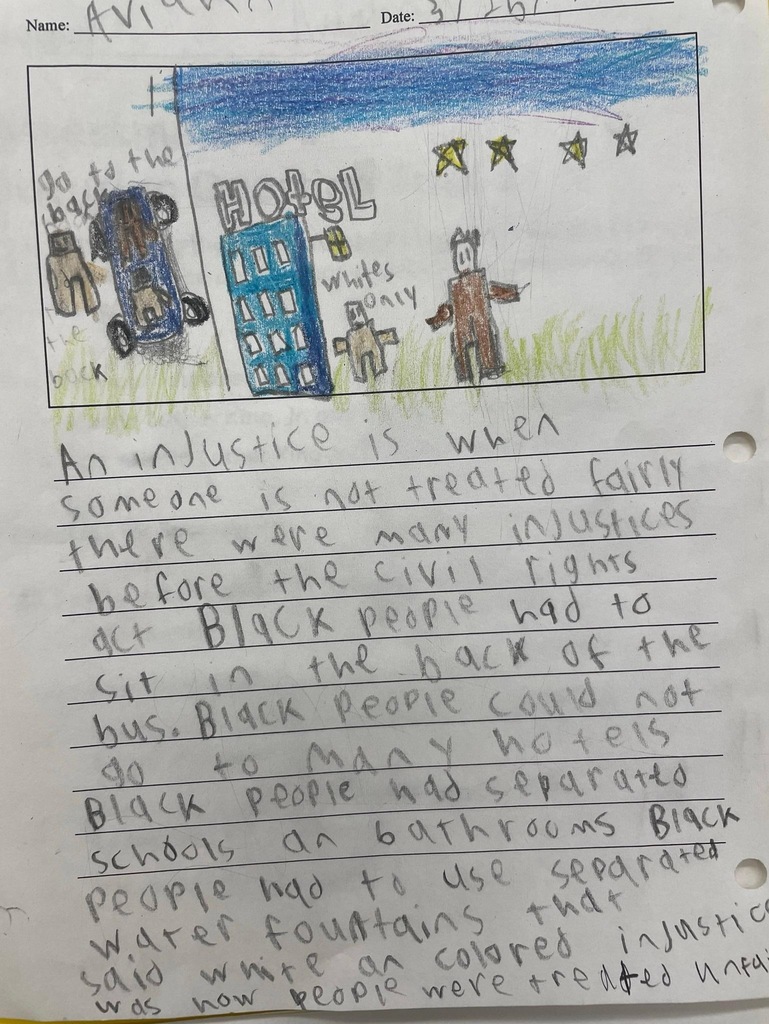 Name:
Date: 3/26/
go to the
back
the
back
HOTEL
whites
only
An injustice is when
someone is not treated fairly
there were many injustices
before the civil rights
act Black people had to
sit in the back of the
bus. Black people could not
go to many hotels
Black people had separated
schools an bathrooms Black
people had to use separated
water fountains that
said white an colored injustic
was how people were treated unfai